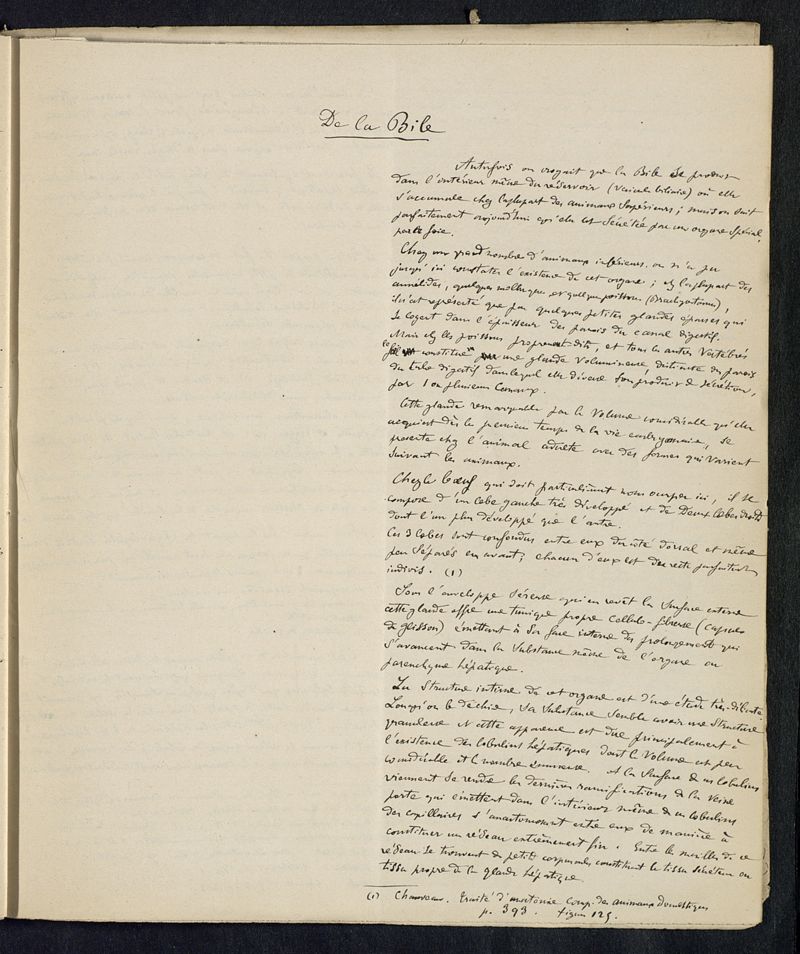 De la Bile
Autrefois on croyait que la Bile se produit
dans l'intérieur même du réservoir (Vésicule biliaire) où elle
s'accumule chez la plupart des animaux supérieurs ; mais on sait
parfaitement aujourd'hui qu'elle est sécrétée par un organe spécial,
par le foie.
Chez un grand nombre d'animaux inférieurs on n'a pu
jusqu'ici constater l'existence de cet organe ; chez la plupart des
annélides, quelques mollusques et quelques poissons (Branchiostoma),
il n'est représenté que par quelques petites glandes éparses qui
se logent dans l'épaisseur des parois du canal digestif.
Mais chez les poissons proprement dits, et tous les autres Vertébrés
le foie constitue une glande volumineuse, distincte des parois
du tube digestif dans lequel elle déverse son produit de sécrétion,
par 1 ou plusieurs canaux.
Cette glande remarquable par le Volume considérable qu'elle
acquiert dès les premiers temps de la vie embryonnaire, se
présente chez l'animal adulte avec des formes qui varient
suivant les animaux.
Chez le bœuf qui doit particulièrement nous occuper ici, il se
compose d'un lobe gauche très développé et de Deux lobes droits
dont l'un plus développé que l'autre.
Ces 3 lobes sont confondus entre eux du côté dorsal et même
peu séparés en avant ; chacun d'eux est du reste parfaitement
indivis. (1)
Sous l'enveloppe séreuse qui en revêt la surface externe
cette glande offre une tunique propre cellulo-fibreuse (capsule
de Glisson) émettant à sa face interne des prolongements qui
s'avancent dans la substance même de l'organe ou
parenchyme hépatique.
La structure interne de cet organe est d'une étude très-délicate.
Lorsqu'on le déchire, sa substance semble avoir une structure
granuleuse et cette apparence est due principalement à
l'existence des lobulins hépatiques dont le Volume est peu
considérable et le nombre immense. A la surface de ces lobulins
viennent se rendre les dernières ramifications de la Veine
porte qui émettent dans l'intérieur même de ces lobulins
des capillaires s'anastomosant entre eux de manière à
constituer un réseau extrêmement fin. Entre les mailles de ce
réseau se trouvent de petits corpuscules constituant le tissu sécréteur ou
tissu propre de la glande hépatique.
(1) Chauveau. Traité d'anatomie comp. des animaux domestiques
p. 393. figure 125.